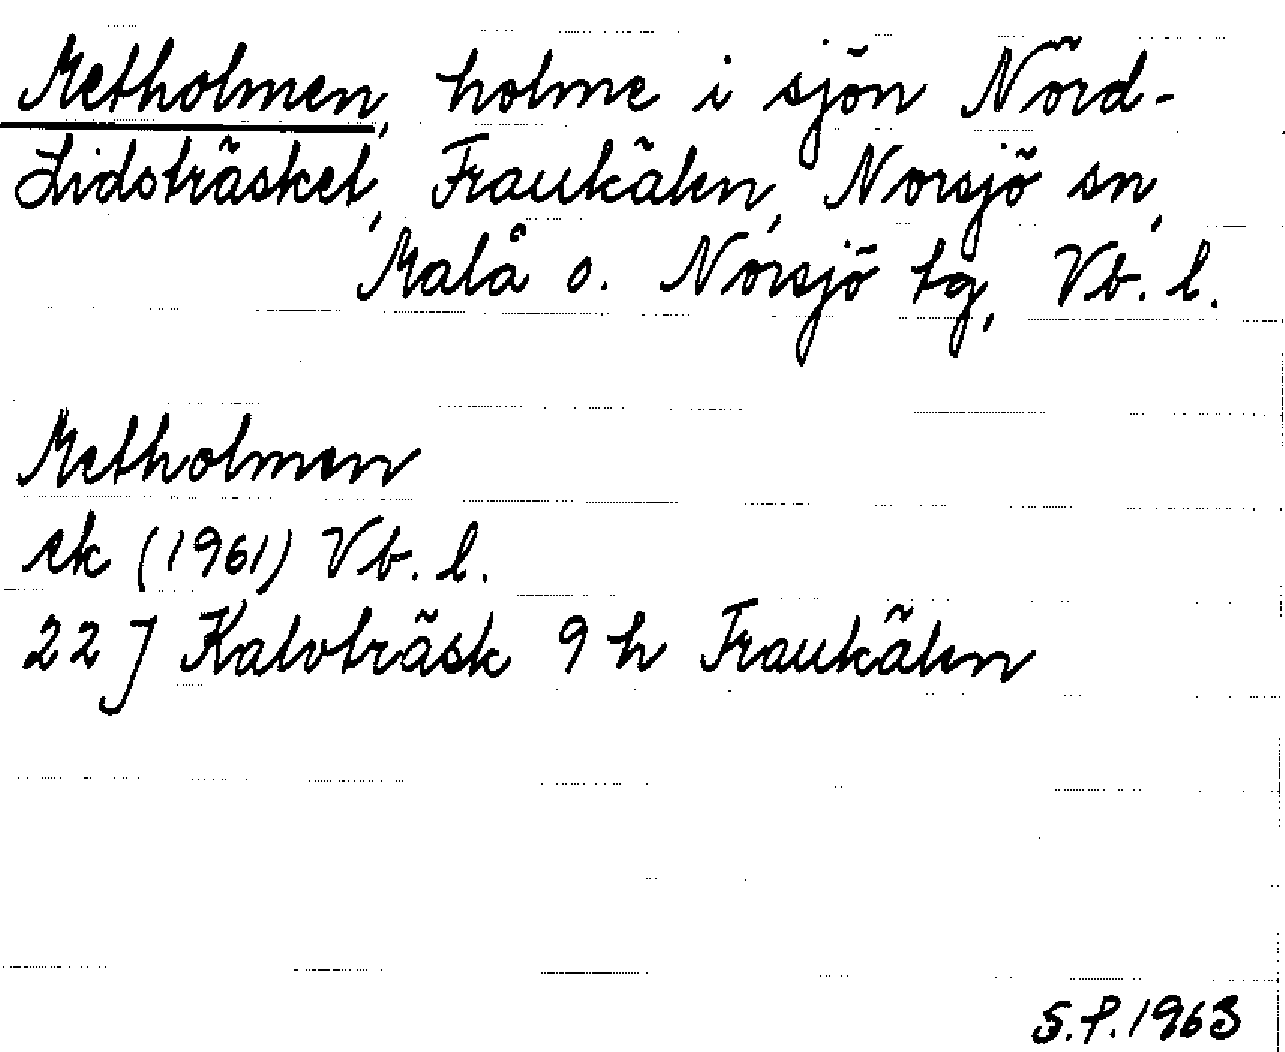 Metholmen, holme i sjön Nörd-
Lidsträsket, Fraukälen, Norsjö sn,
Malå o. Norsjö tg, Vb. l.
Metholmen
ek (1961) Vb. l.
22 J Kalvträsk 9 h Fraukälen
S.P. 1963